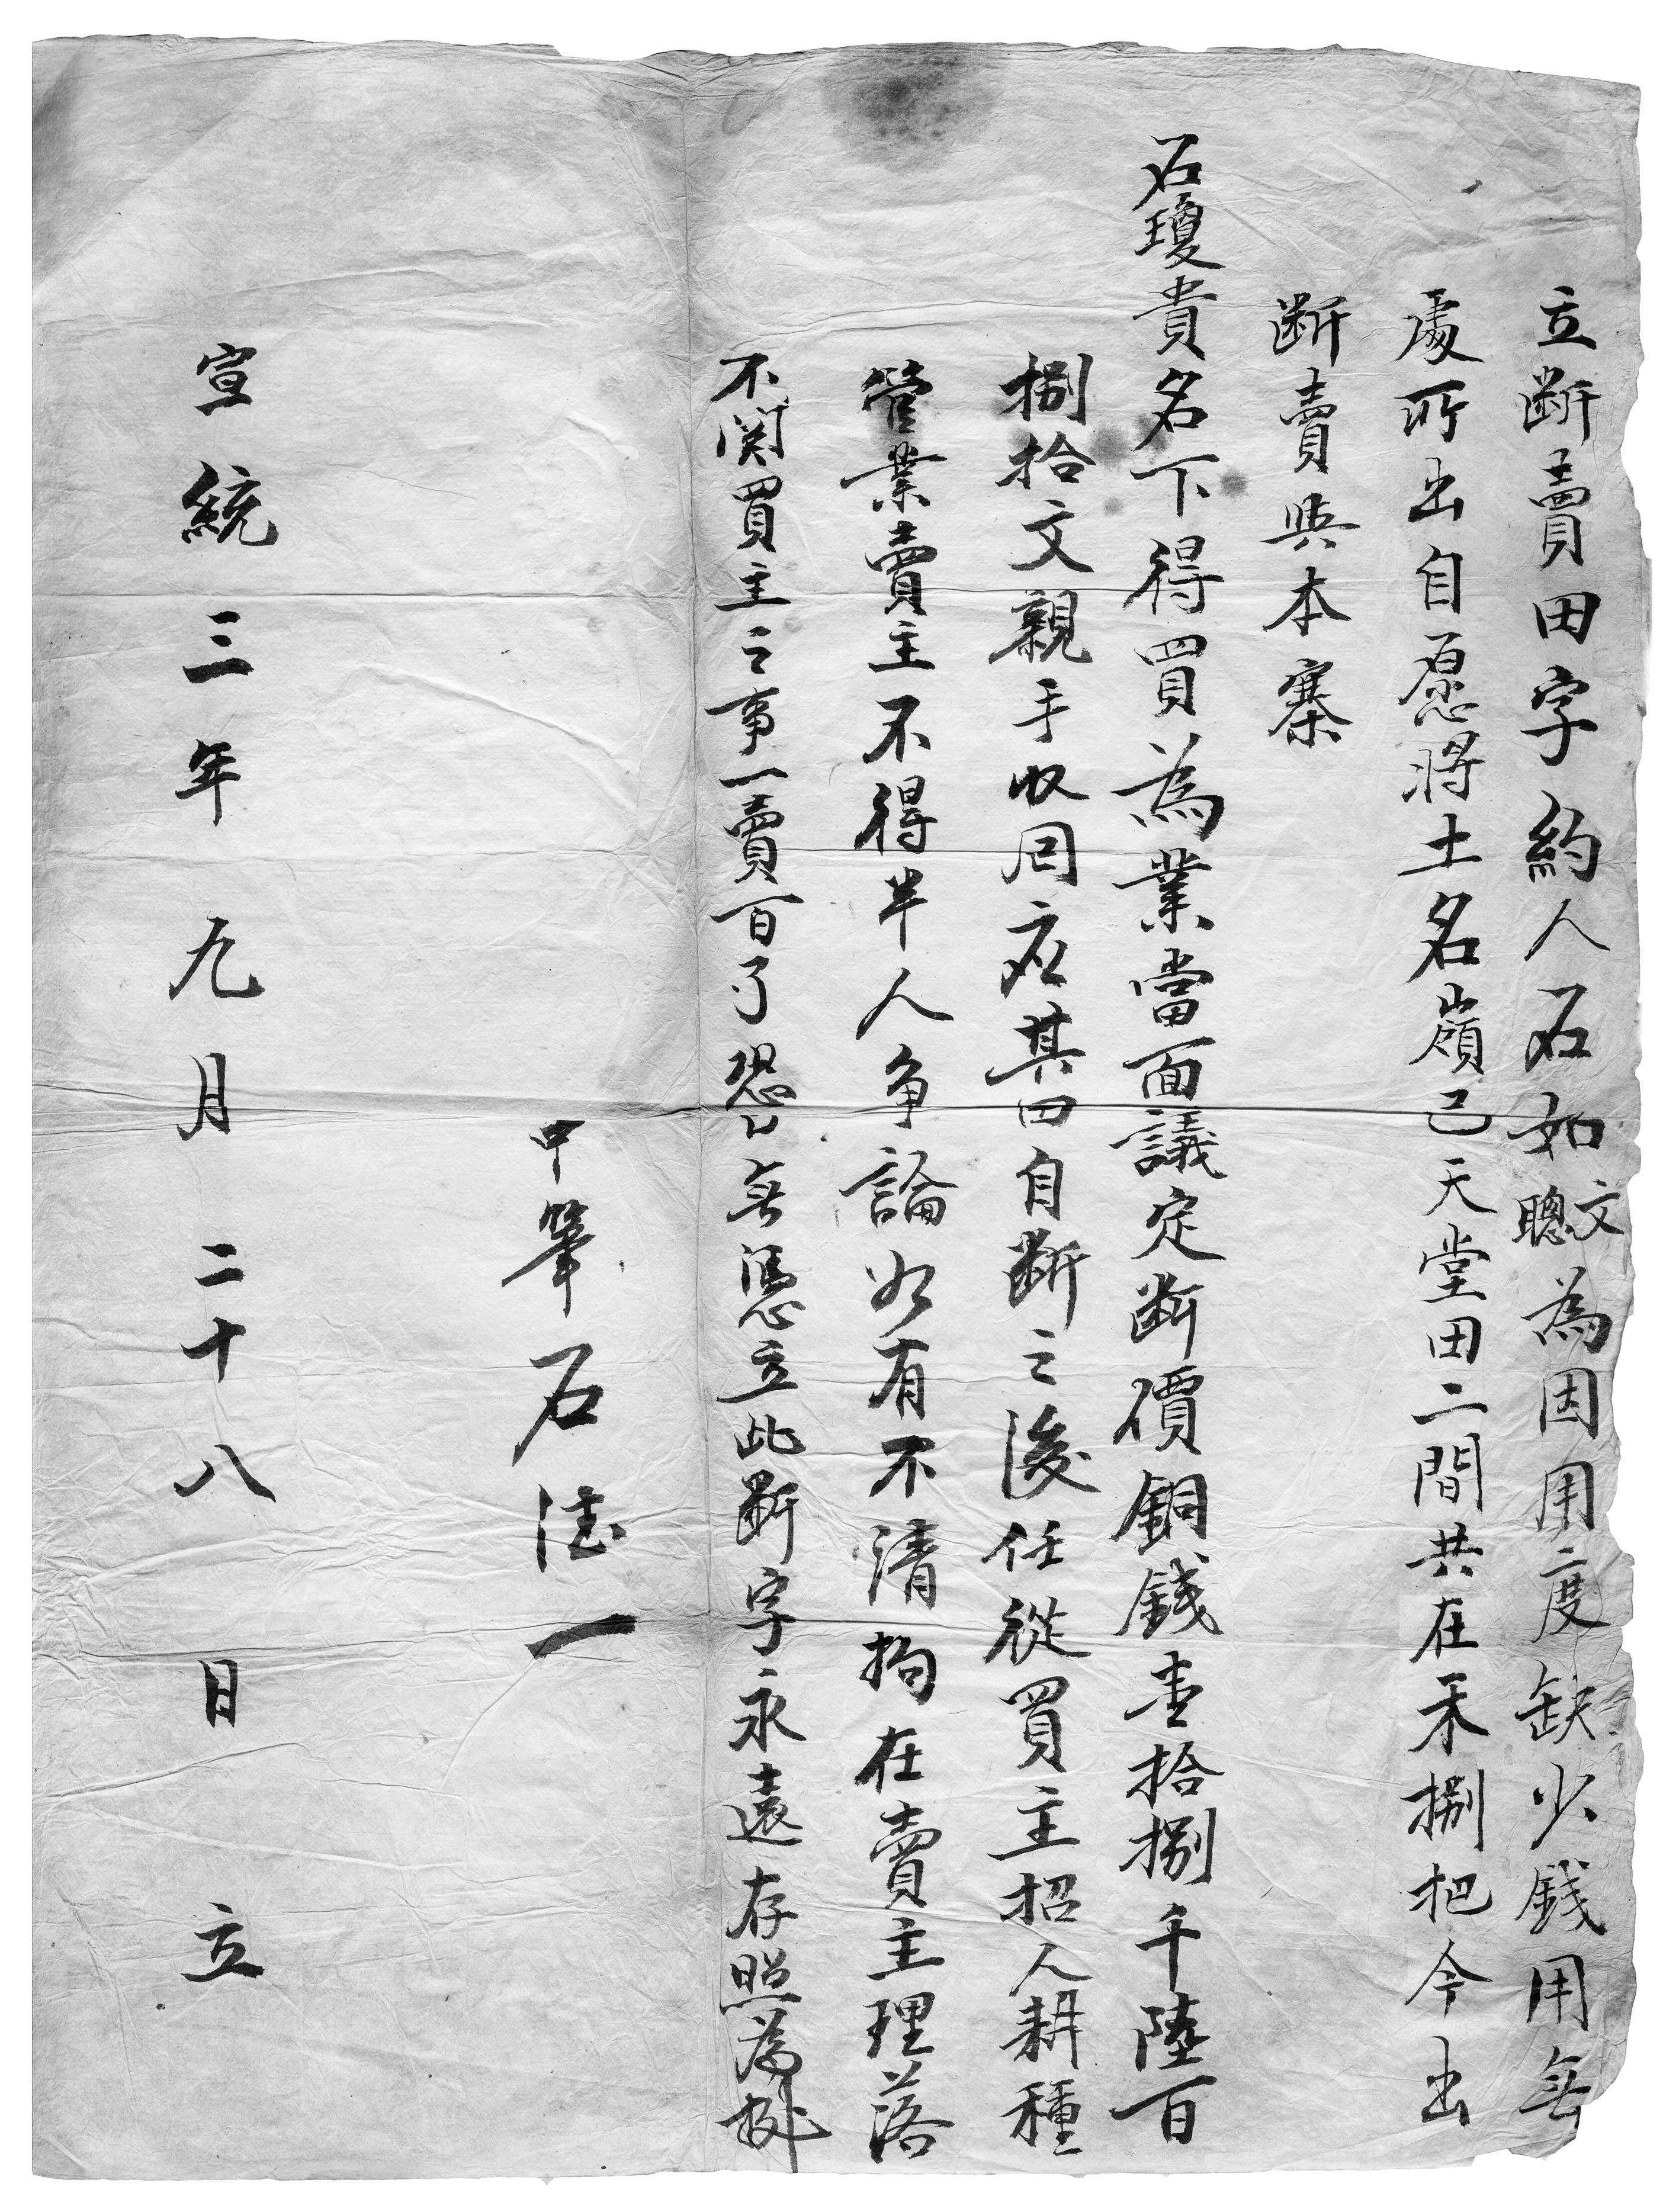 立斷賣田字約人石如文聰為因用度缺少錢用無
處所出自愿將土名嶺己天堂田二間共在禾捌把今出
斷賣與本寨
石瓊貴名下得買為業當面議定斷價銅錢壹拾捌千陸百
捌拾文親手收囘應其田自斷之後任從買主招人耕種
管業賣主不得半人争論如有不清拘在賣主理落
不関買主之事一賣百了恐口無憑立此斷字永遠存照為據
中筆石德一
宣統三年九月二十八日立